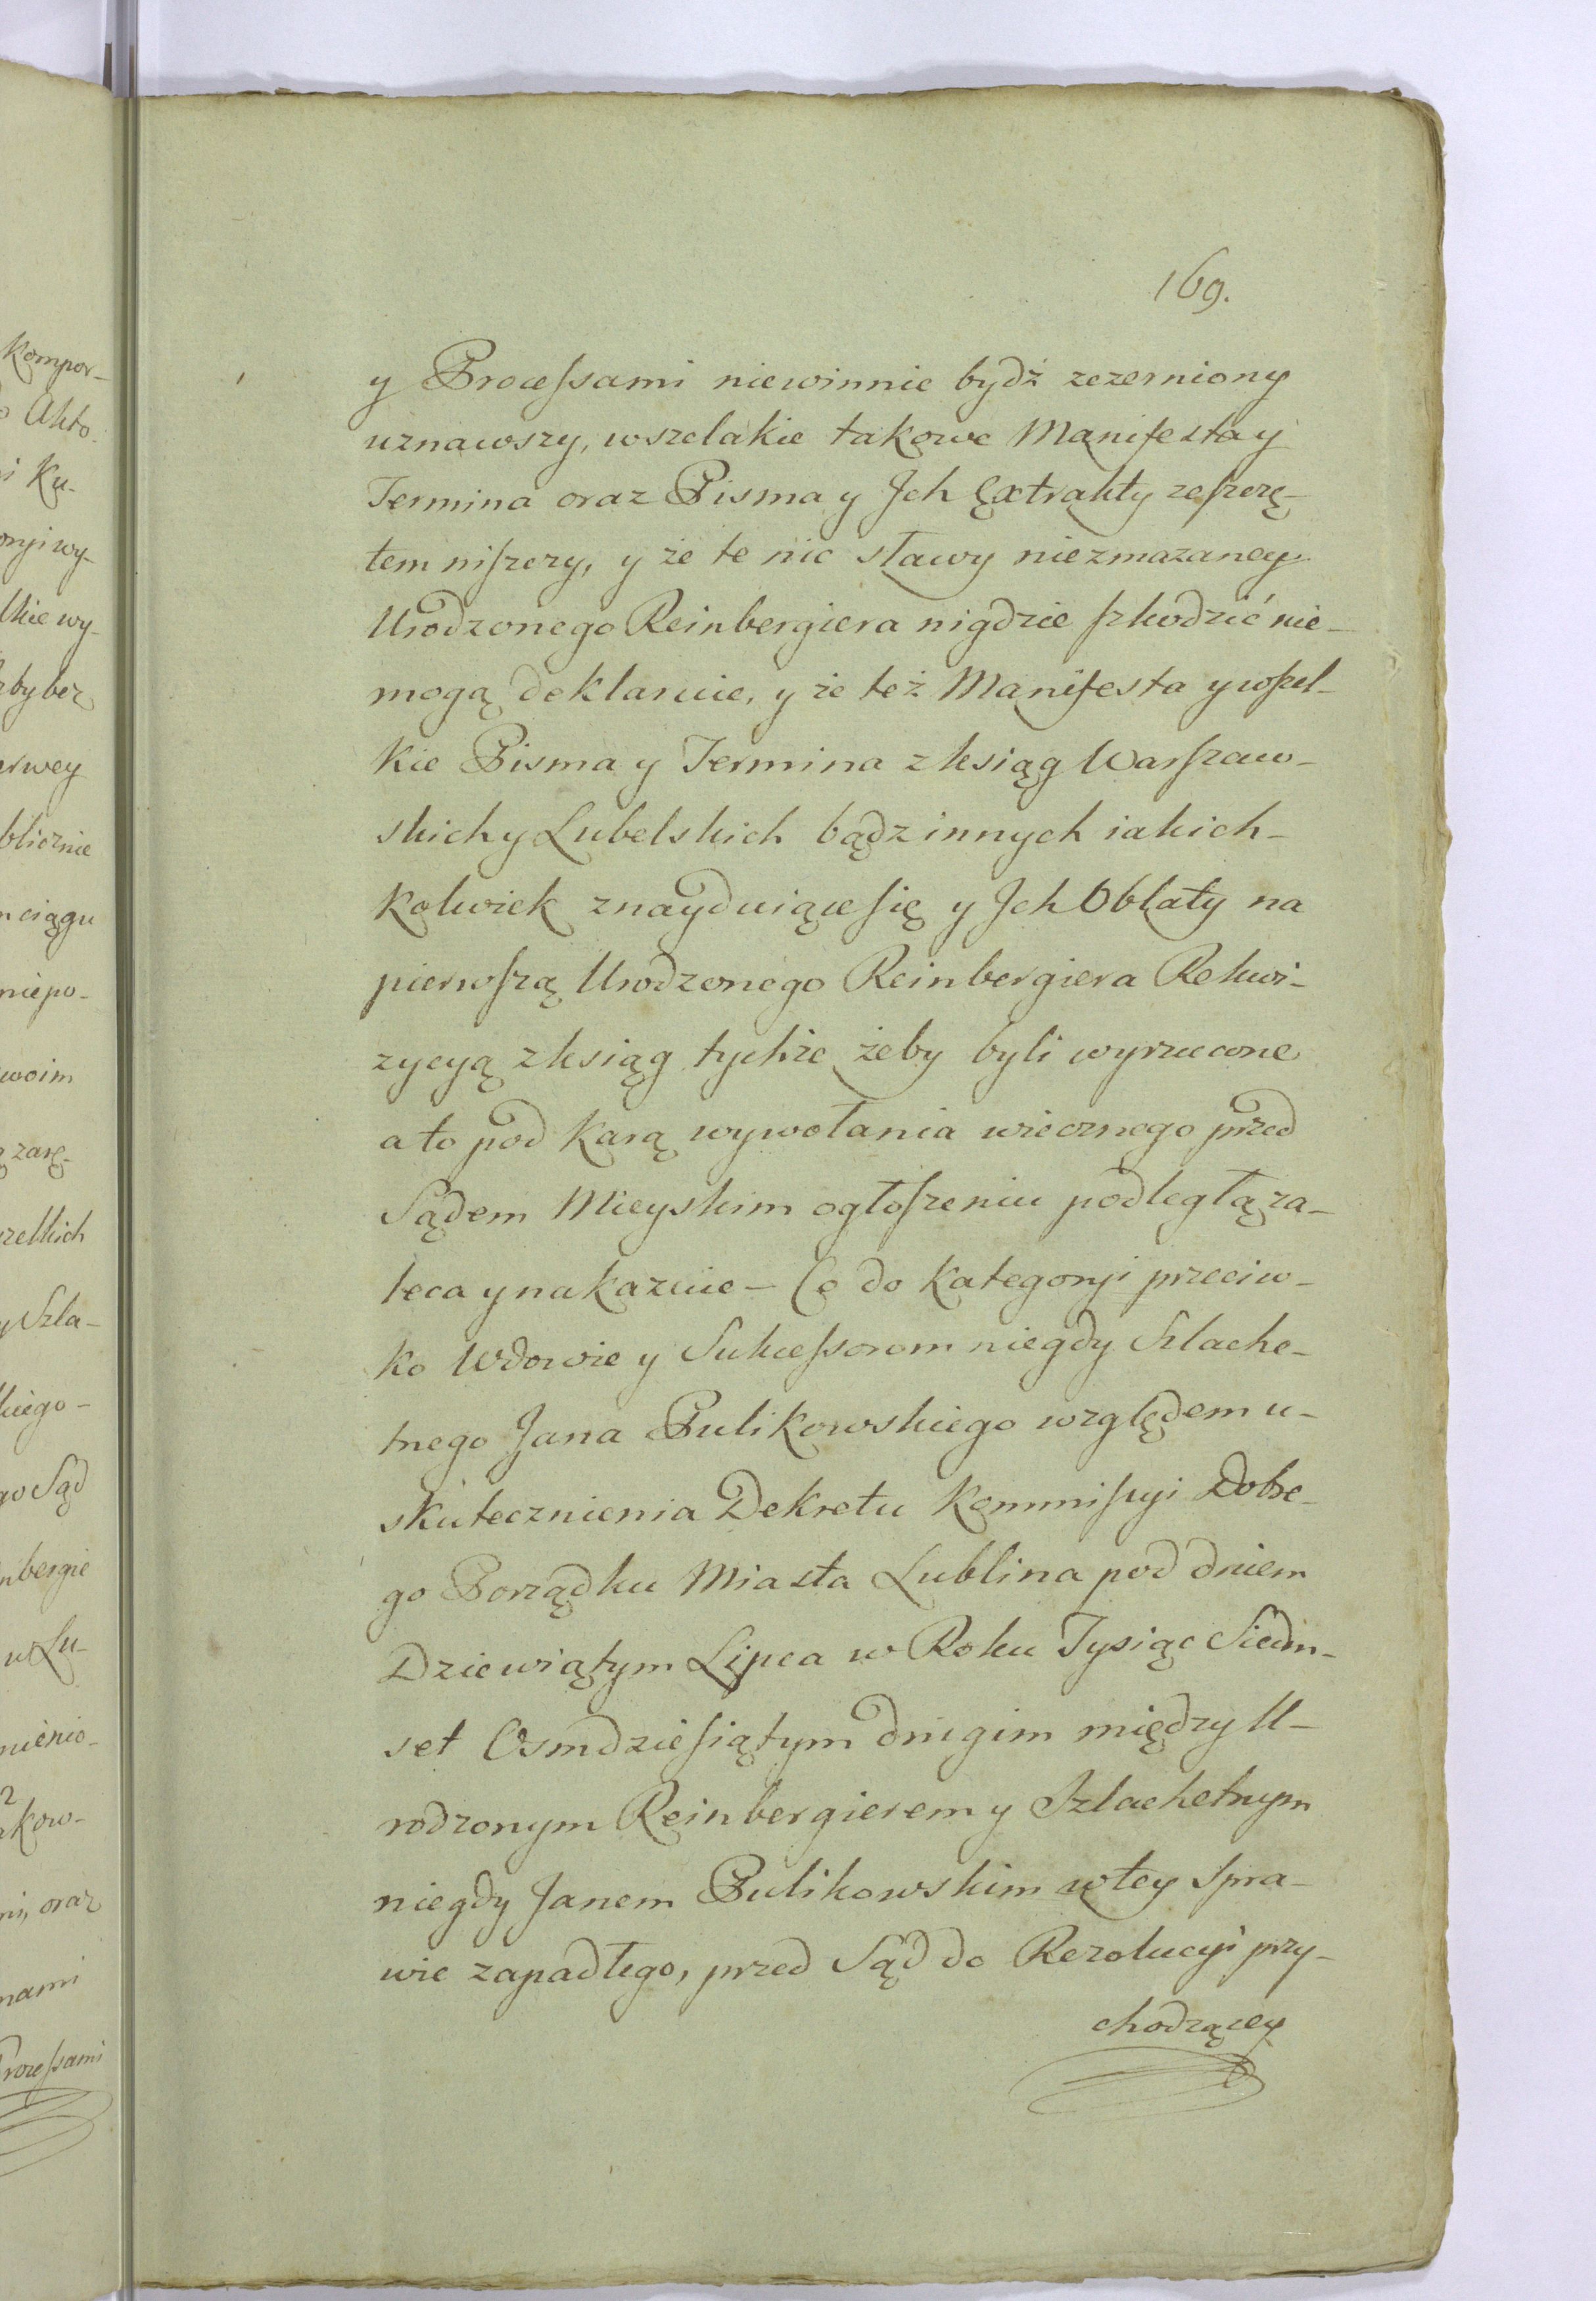 169.
y Processami niewinnie bydź zczerniony
uznawszy, wszelakie takowe Manifesta y
Termina oraz Pisma y Jch Extrakty zeszczę-
tem niszczy, y że te nic sławy niezmazaney
Urodzonego Reinbergiera nigdzie szkodzić nie-
mogą deklaruie, y że też Manifesta y wszel-
kie Pisma y Termina z ksiąg Warszaw-
skich y Lubelskich bądz innych iakich-
kolwiek znayduiące się y Jch Oblaty na
pierwszą Urodzonego Reinbergiera Rekwi-
zycyą z ksiąg tychże żeby byli wyrzucone
a to pod karą wywołania wiecznego przed
Sądem Mieyskim ogłoszeniu podległą za-
leca y nakazuie — Co do Kategoryi przeciw-
ko Wdowie y Sukcessorom niegdy Szlache-
tnego Jana Pulikowskiego względem u-
skutecznienia Dekretu Kommissyi Dobre-
go Porządku Miasta Lublina pod dniem
Dziewiątym Lipca w Roku Tysiąc Siedm-
set Osmdziesiątym drugim między U-
rodzonym Reinbergierem y Szlachetnym
niegdy Janem Pulikowskim w tey Spra-
wie zapadłego, przed Sąd do Rezolucyi przy-
chodzącey
Kompor-
Akto.
i Ku-
onyi wy-
lkie wy-
by bez
erwey
blicznie
ciągu
niepo-
woim
zarę-
zelkich
y Szla-
kiego-
go Sąd
nbergie
w Lu-
mienio-
kow-
ni, oraz
nami
Processami